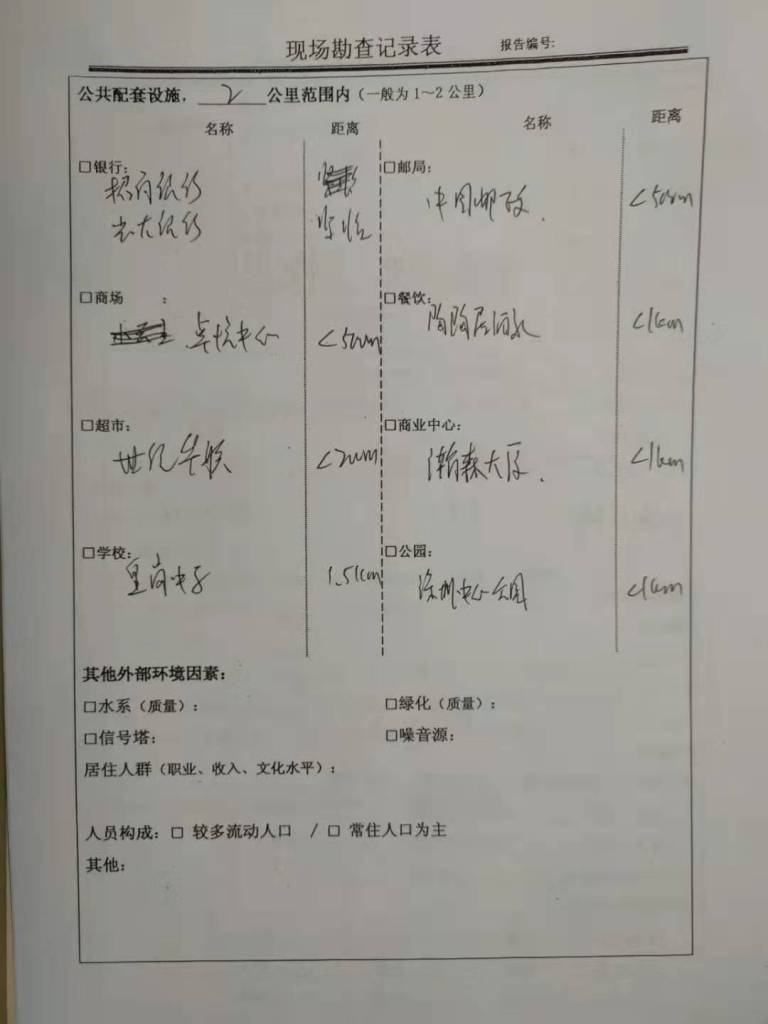 现场勘查记录表 报告编号:
公共配套设施，2公里范围内（一般为1～2公里）
名称 距离 名称 距离
□银行： □邮局：
招商银行
光大银行 紧临 中国邮政. <500m
□商场 ： □餐饮：
中心 <500m 陶陶居酒家 <1km
□超市： □商业中心：
世纪华联 <200m 瀚森大厦. <1km
□学校： □公园：
皇岗中学 1.5km 深圳中心公园 <1km
其他外部环境因素：
□水系（质量）： □绿化（质量）：
□信号塔： □噪音源：
居住人群（职业、收入、文化水平）：
人员构成：□ 较多流动人口 / □ 常住人口为主
其他：